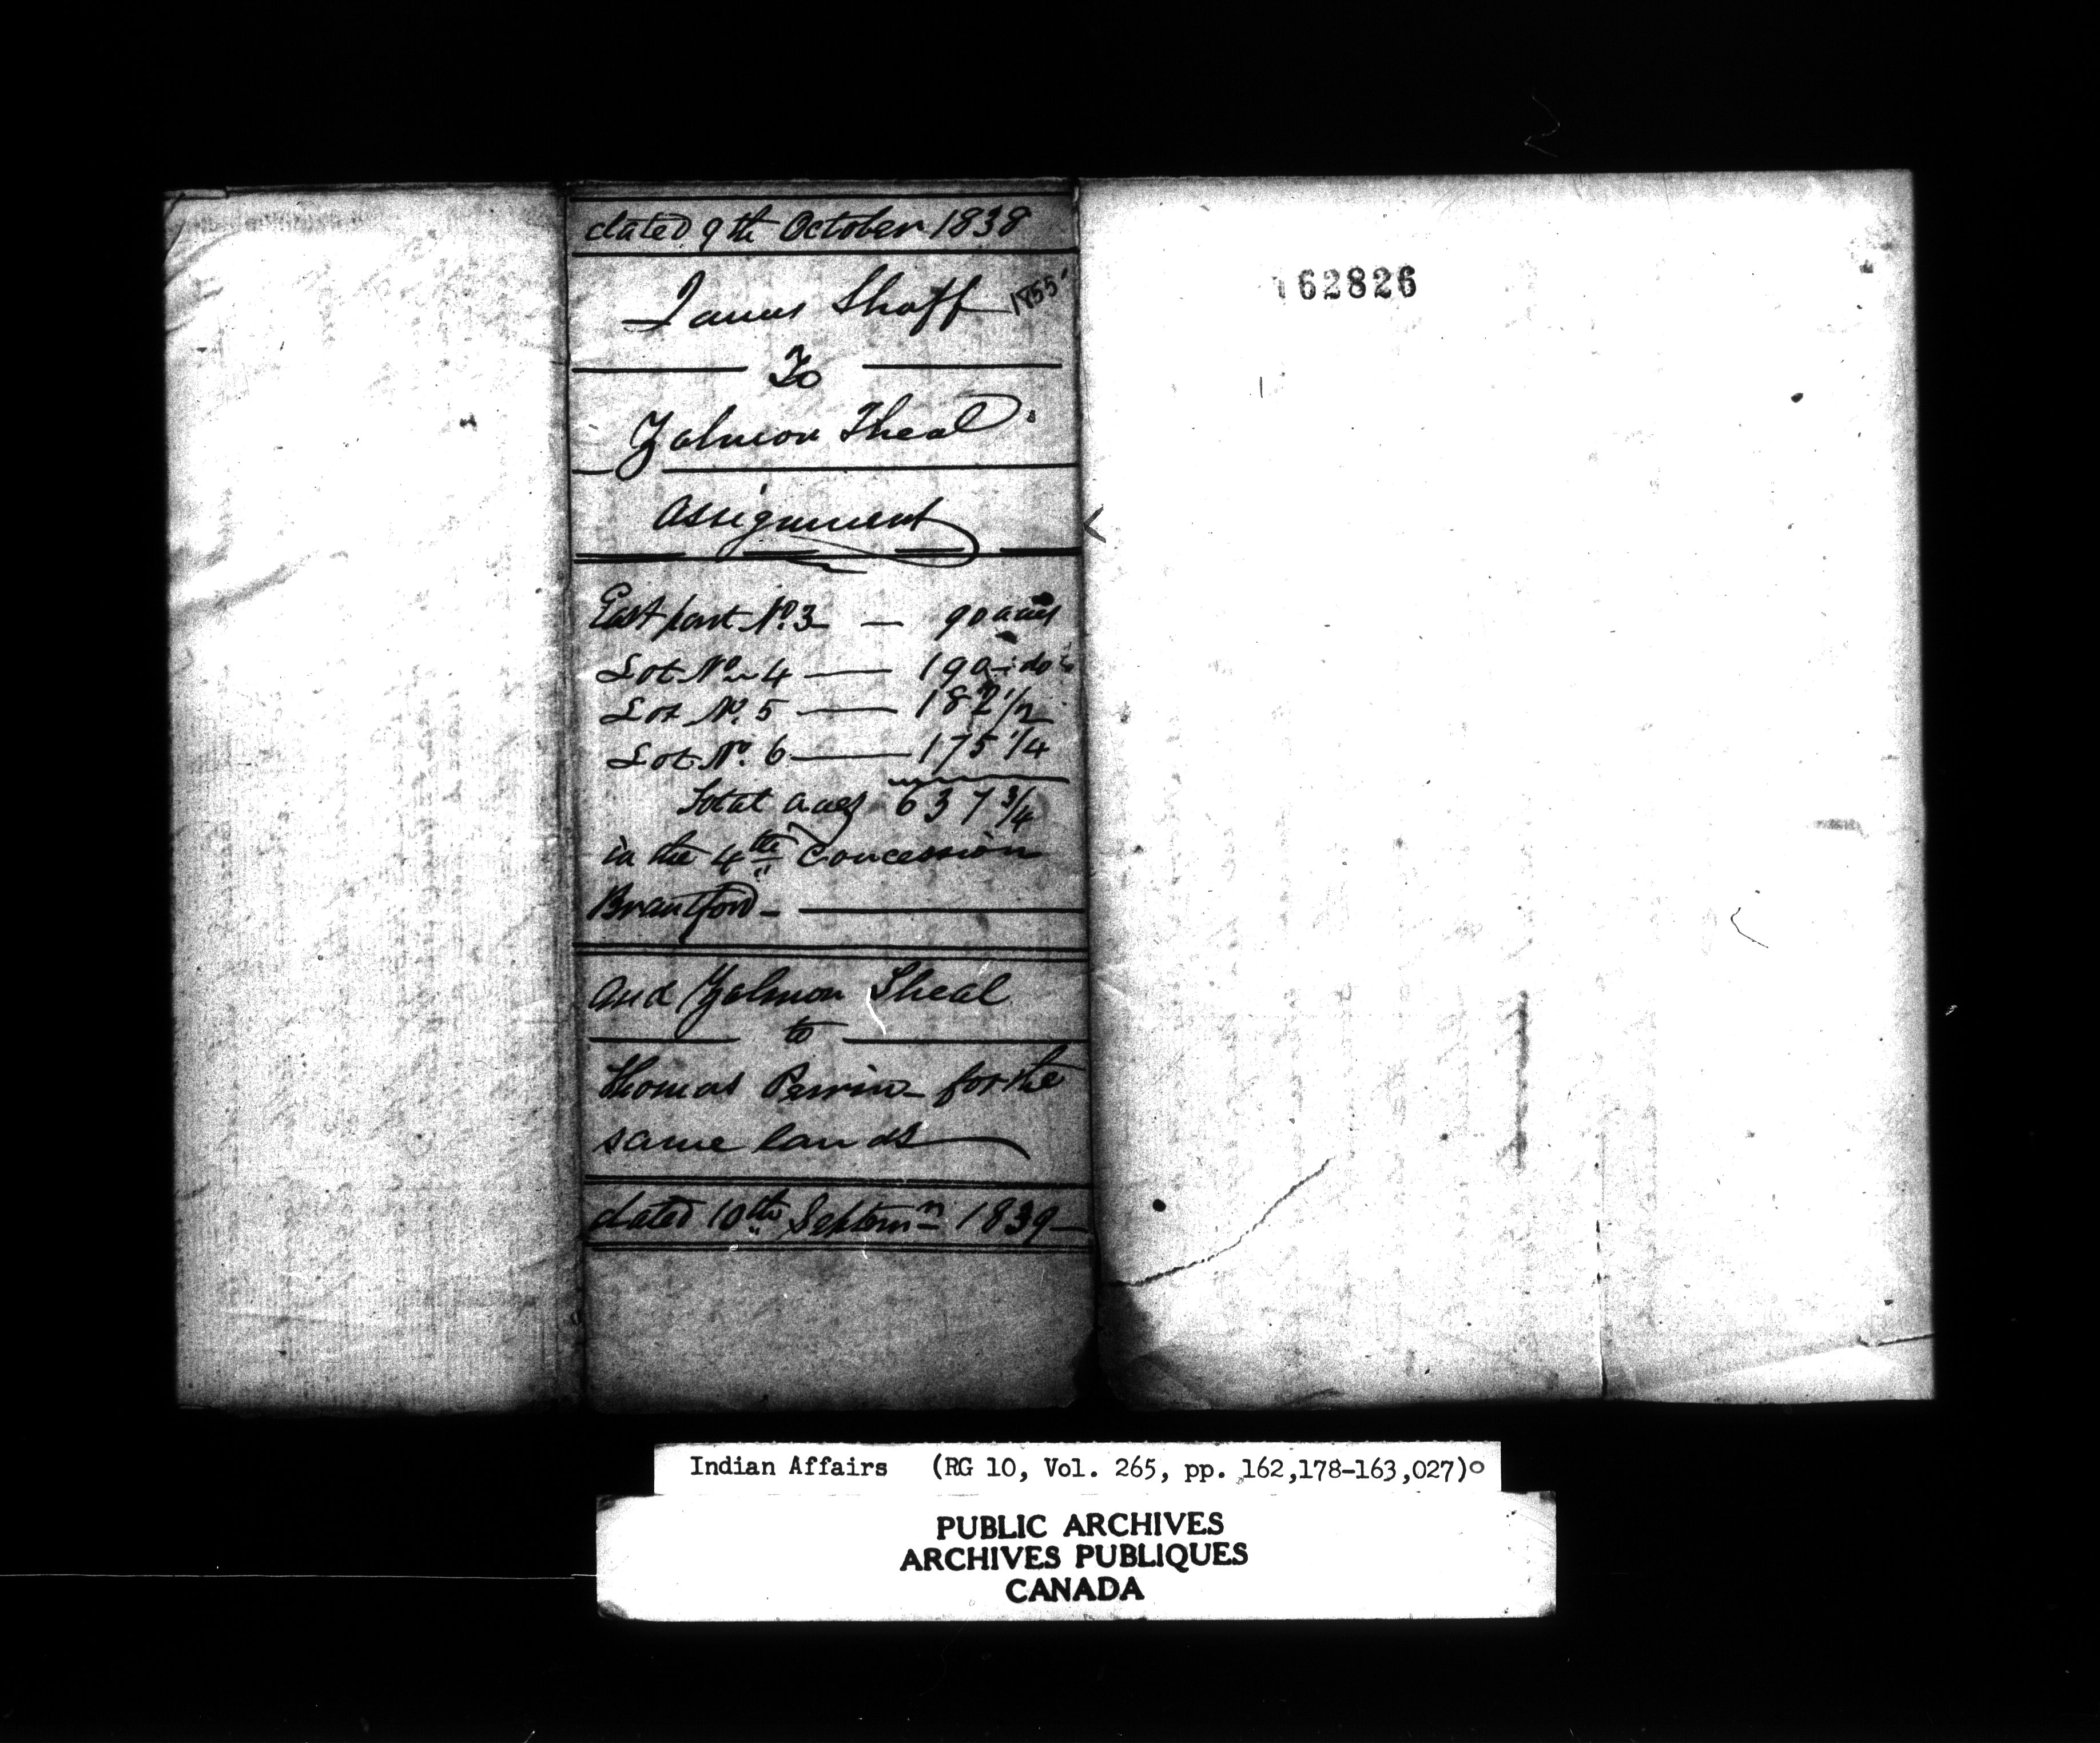 dated 9th October 1838
James Shaff 1855
To
Zalmon Theal
Assignment
East part No. 3 — 90 acres
Lot No 4 — 190 - do
Lot No. 5 — 182 1/2
Lot No. 6 — 175 1/4
Total acres 637 3/4
in the 4th Concession
Brantford —
and Zalmon Theal
to
Thomas Perrin - for the
same lands
dated 10th Septemr 1839 —
162826
Indian Affairs (RG 10, Vol. 265, pp. 162,178-163,027)
PUBLIC ARCHIVES
ARCHIVES PUBLIQUES
CANADA